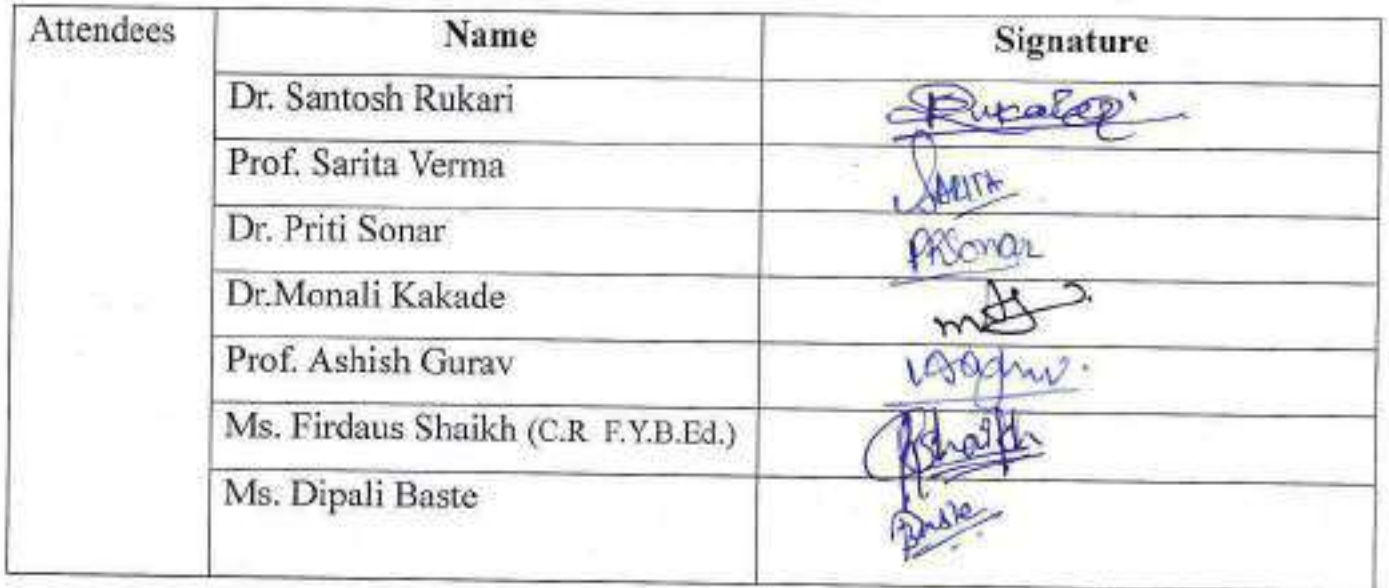 Attendees Name Signature
Dr. Santosh Rukari
Prof. Sarita Verma SARITA
Dr. Priti Sonar PRSonar
Dr.Monali Kakade
Prof. Ashish Gurav
Ms. Firdaus Shaikh (C.R F.Y.B.Ed.) Shaikh
Ms. Dipali Baste Baste